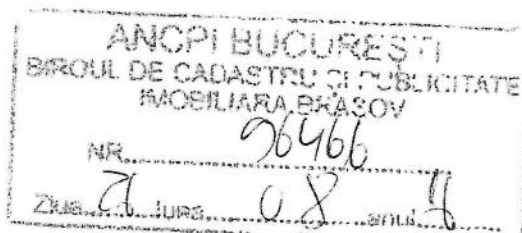 ANCPI BUCUREȘTI
BIROUL DE CADASTRU ȘI PUBLICITATE
IMOBILIARA BRAȘOV
NR. 96466
Ziua luna 08 anul